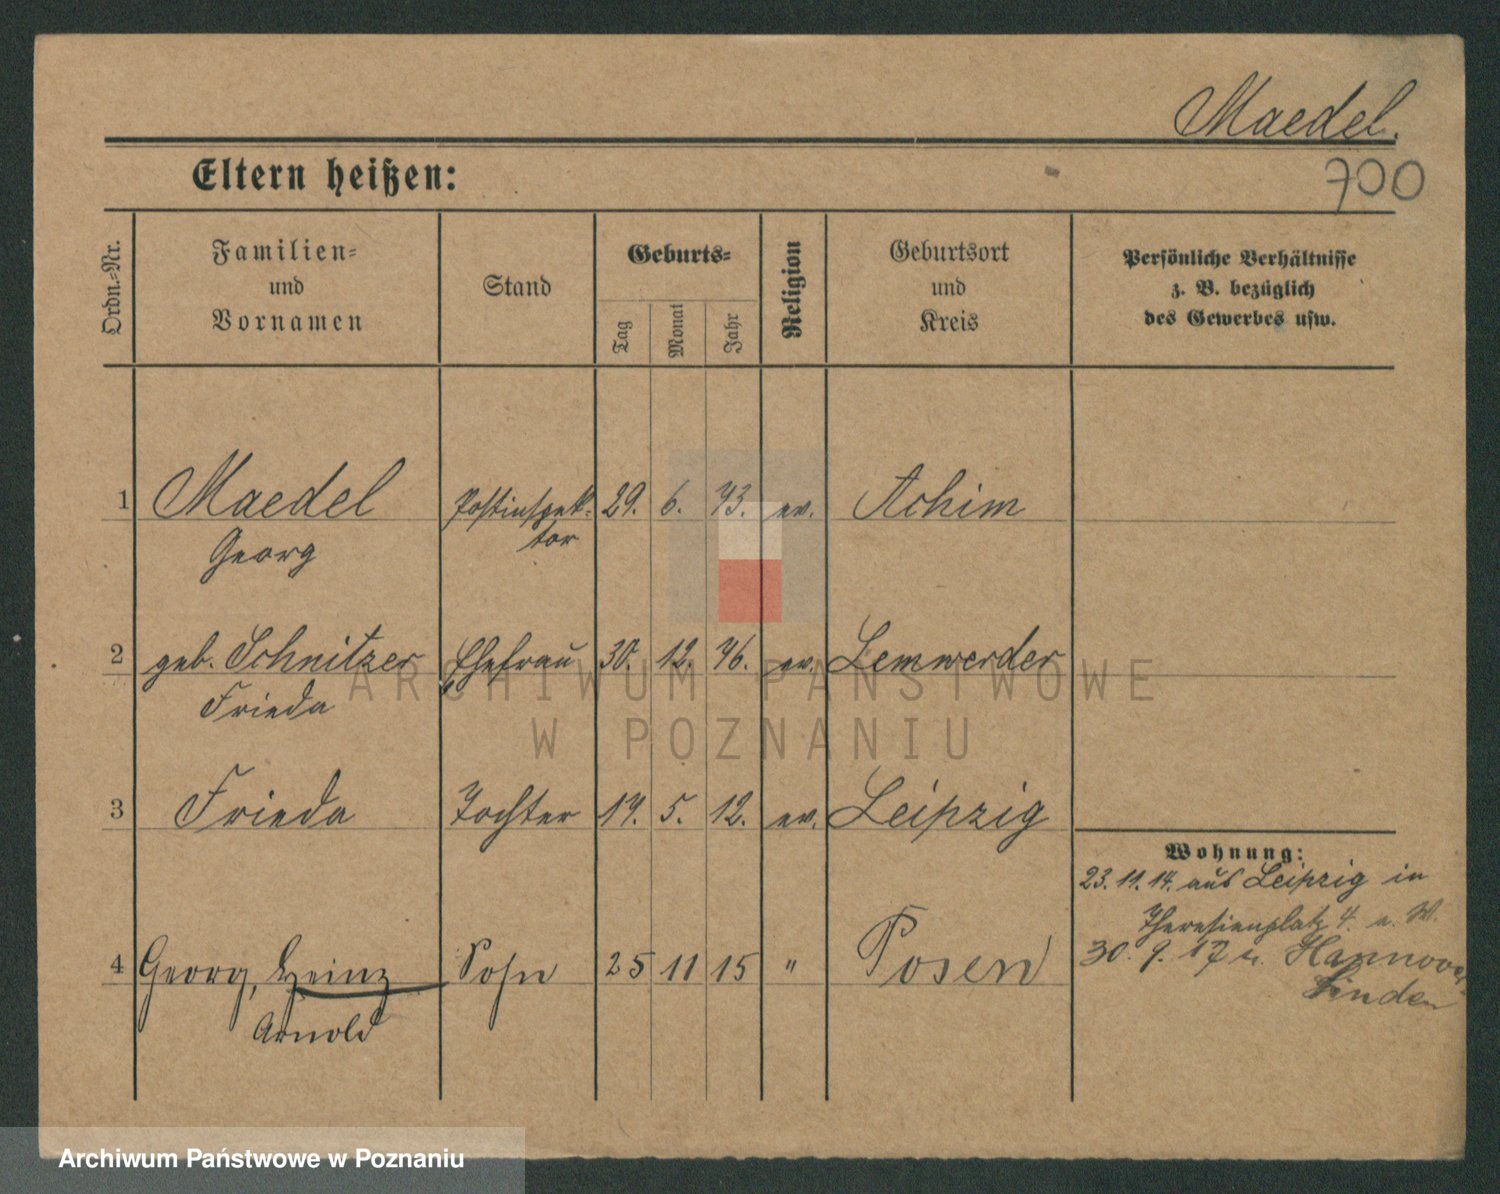 Maedel.
700
Eltern heißen:
Ordn.=Nr.
Familien=
und
Vornamen
Stand
Geburts=
Tag
Monat
Jahr
Religion
Geburtsort
und
Kreis
Persönliche Verhältnisse
z. B. bezüglich
des Gewerbes usw.
1 Maedel Postinspek= 29. 6. 73. ev. Achim
Georg tor
2 geb. Schnitzer Ehefrau 30. 12. 76. ev. Lemwerder
Frieda
3 Frieda Tochter 14. 5. 12. ev. Leipzig
Wohnung:
23. 11. 14. aus Leipzig in
Theresienplatz 4.
30. 9. 17 Hannover
Linden
4 Georg, Heinz Sohn 25 11 15 " Posen
Arnold
ARCHIWUM PAŃSTWOWE
W POZNANIU
Archiwum Państwowe w Poznaniu